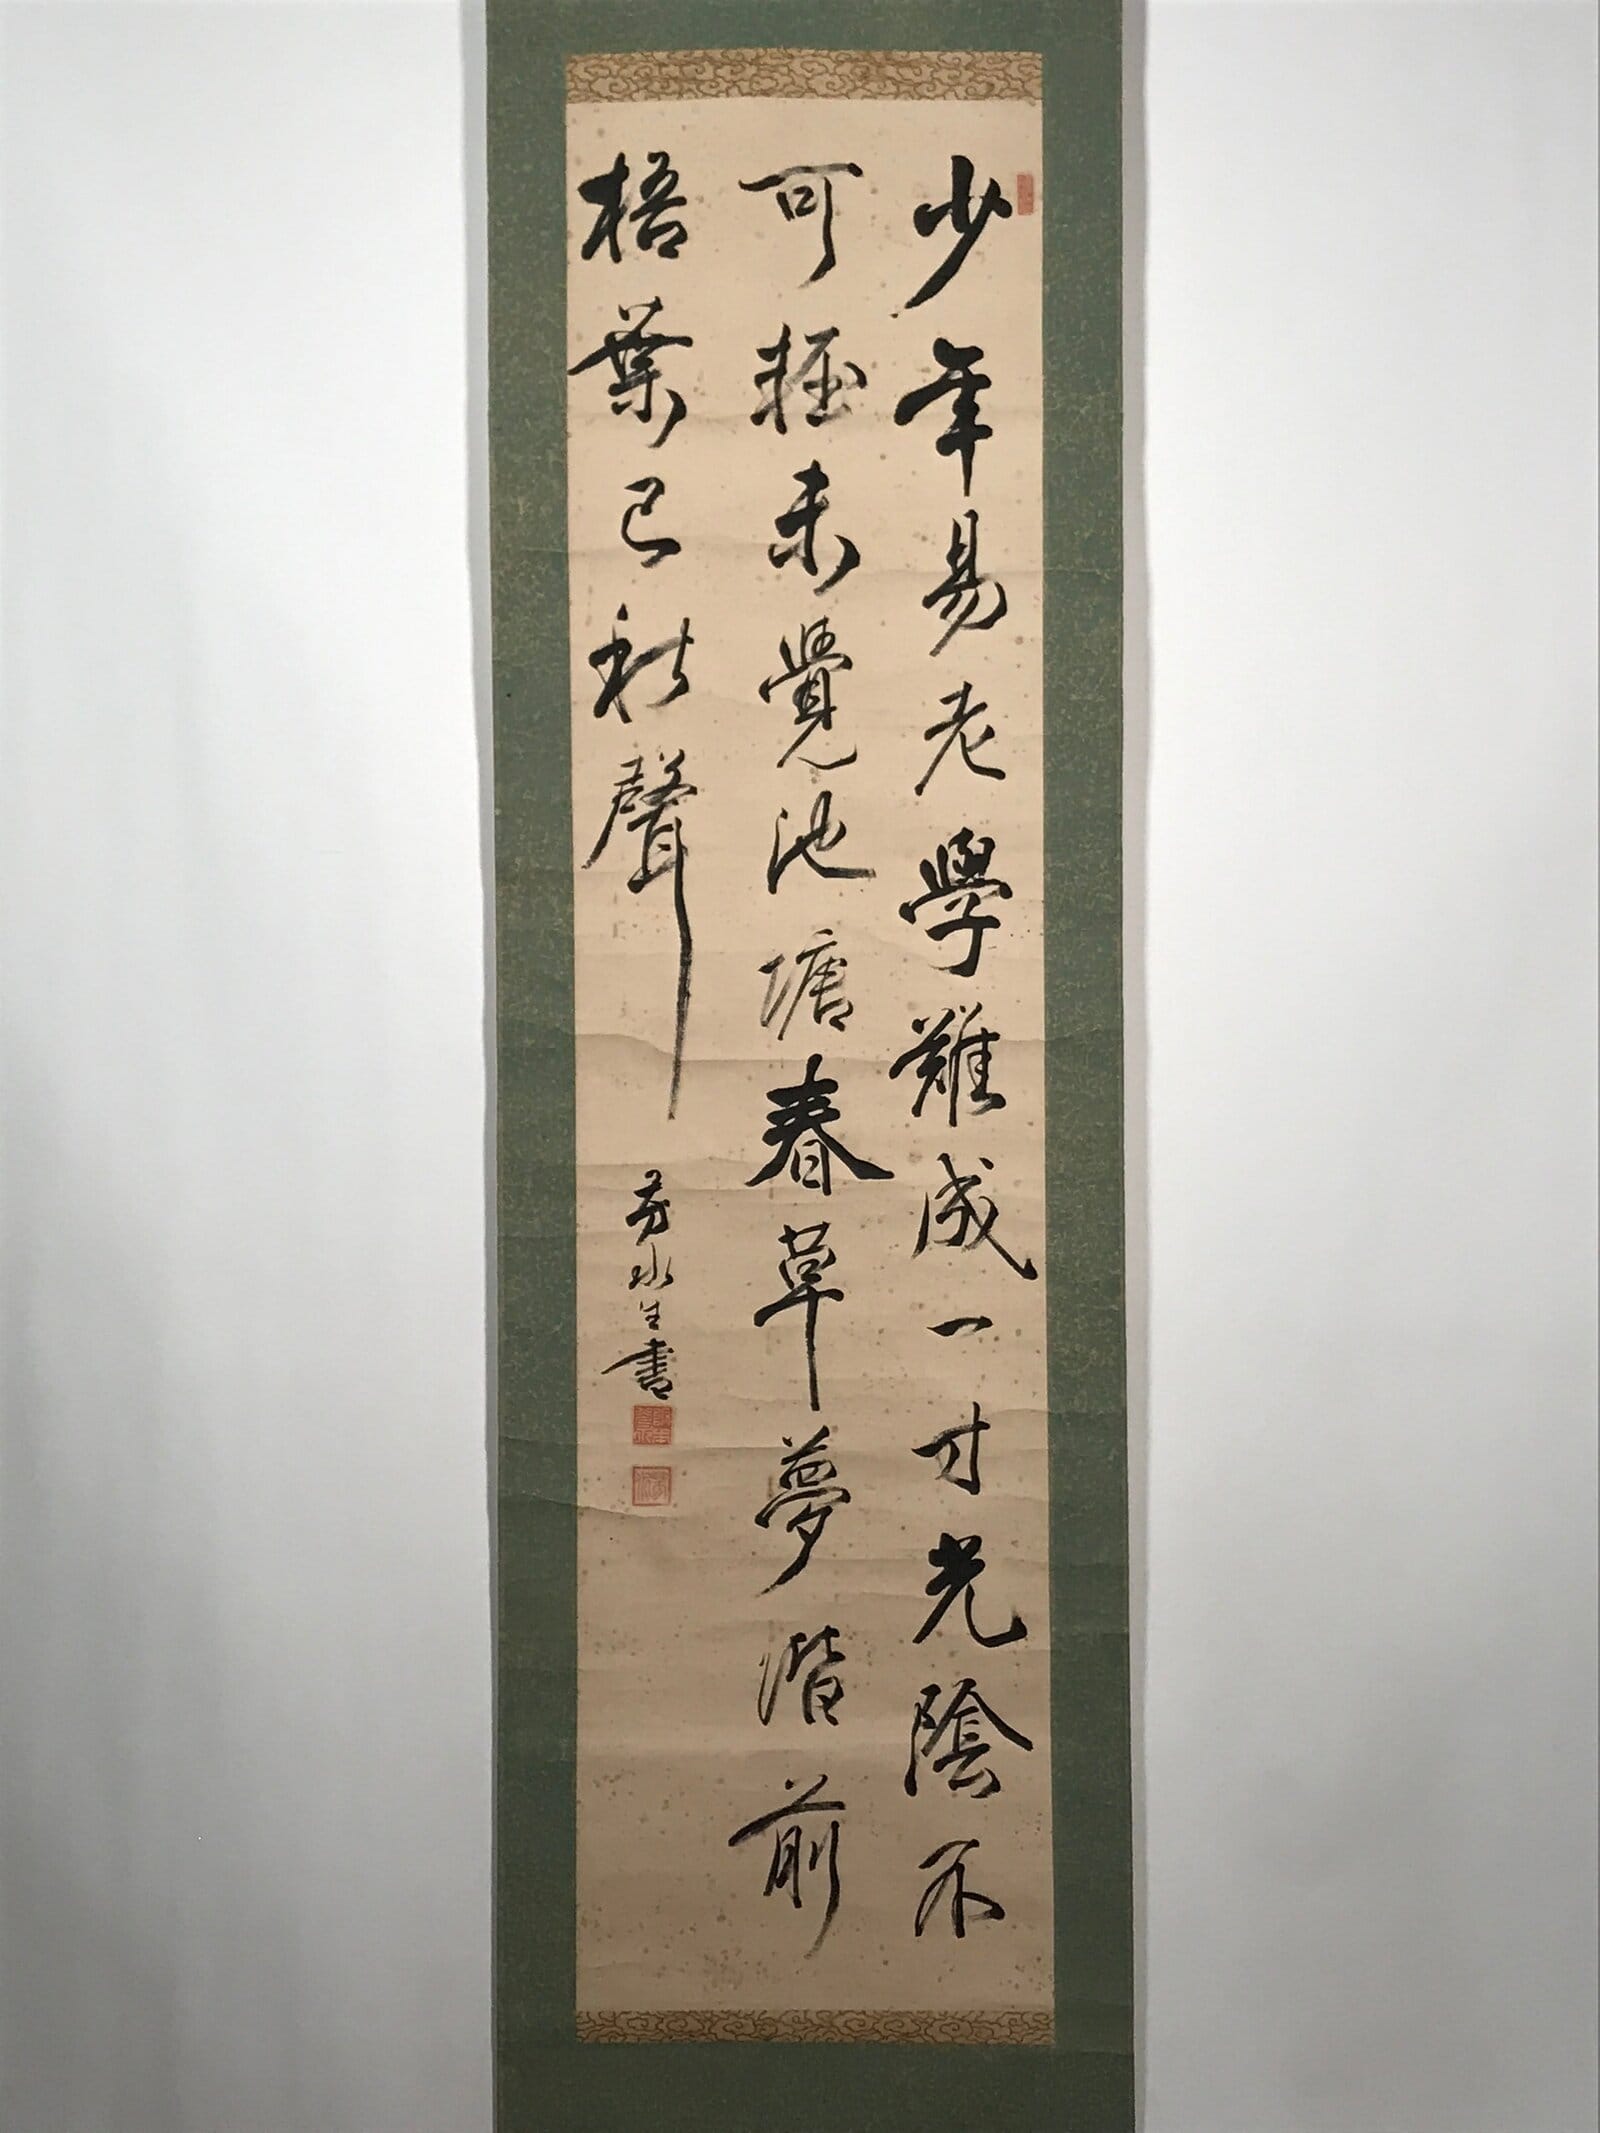 少年易老學難成一寸光陰不
可輕未覺池塘春草夢階前
梧葉已秋聲
芳水生書